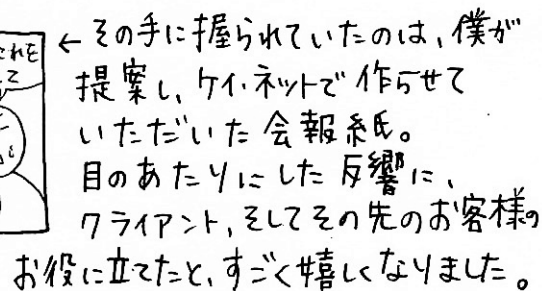 これを
て
←その手に握られていたのは、僕が
提案し、ケイ・ネットで作らせて
いただいた会報紙。
目のあたりにした反響に、
クライアント、そしてその先のお客様の
お役に立てたと、すごく嬉しくなりました。